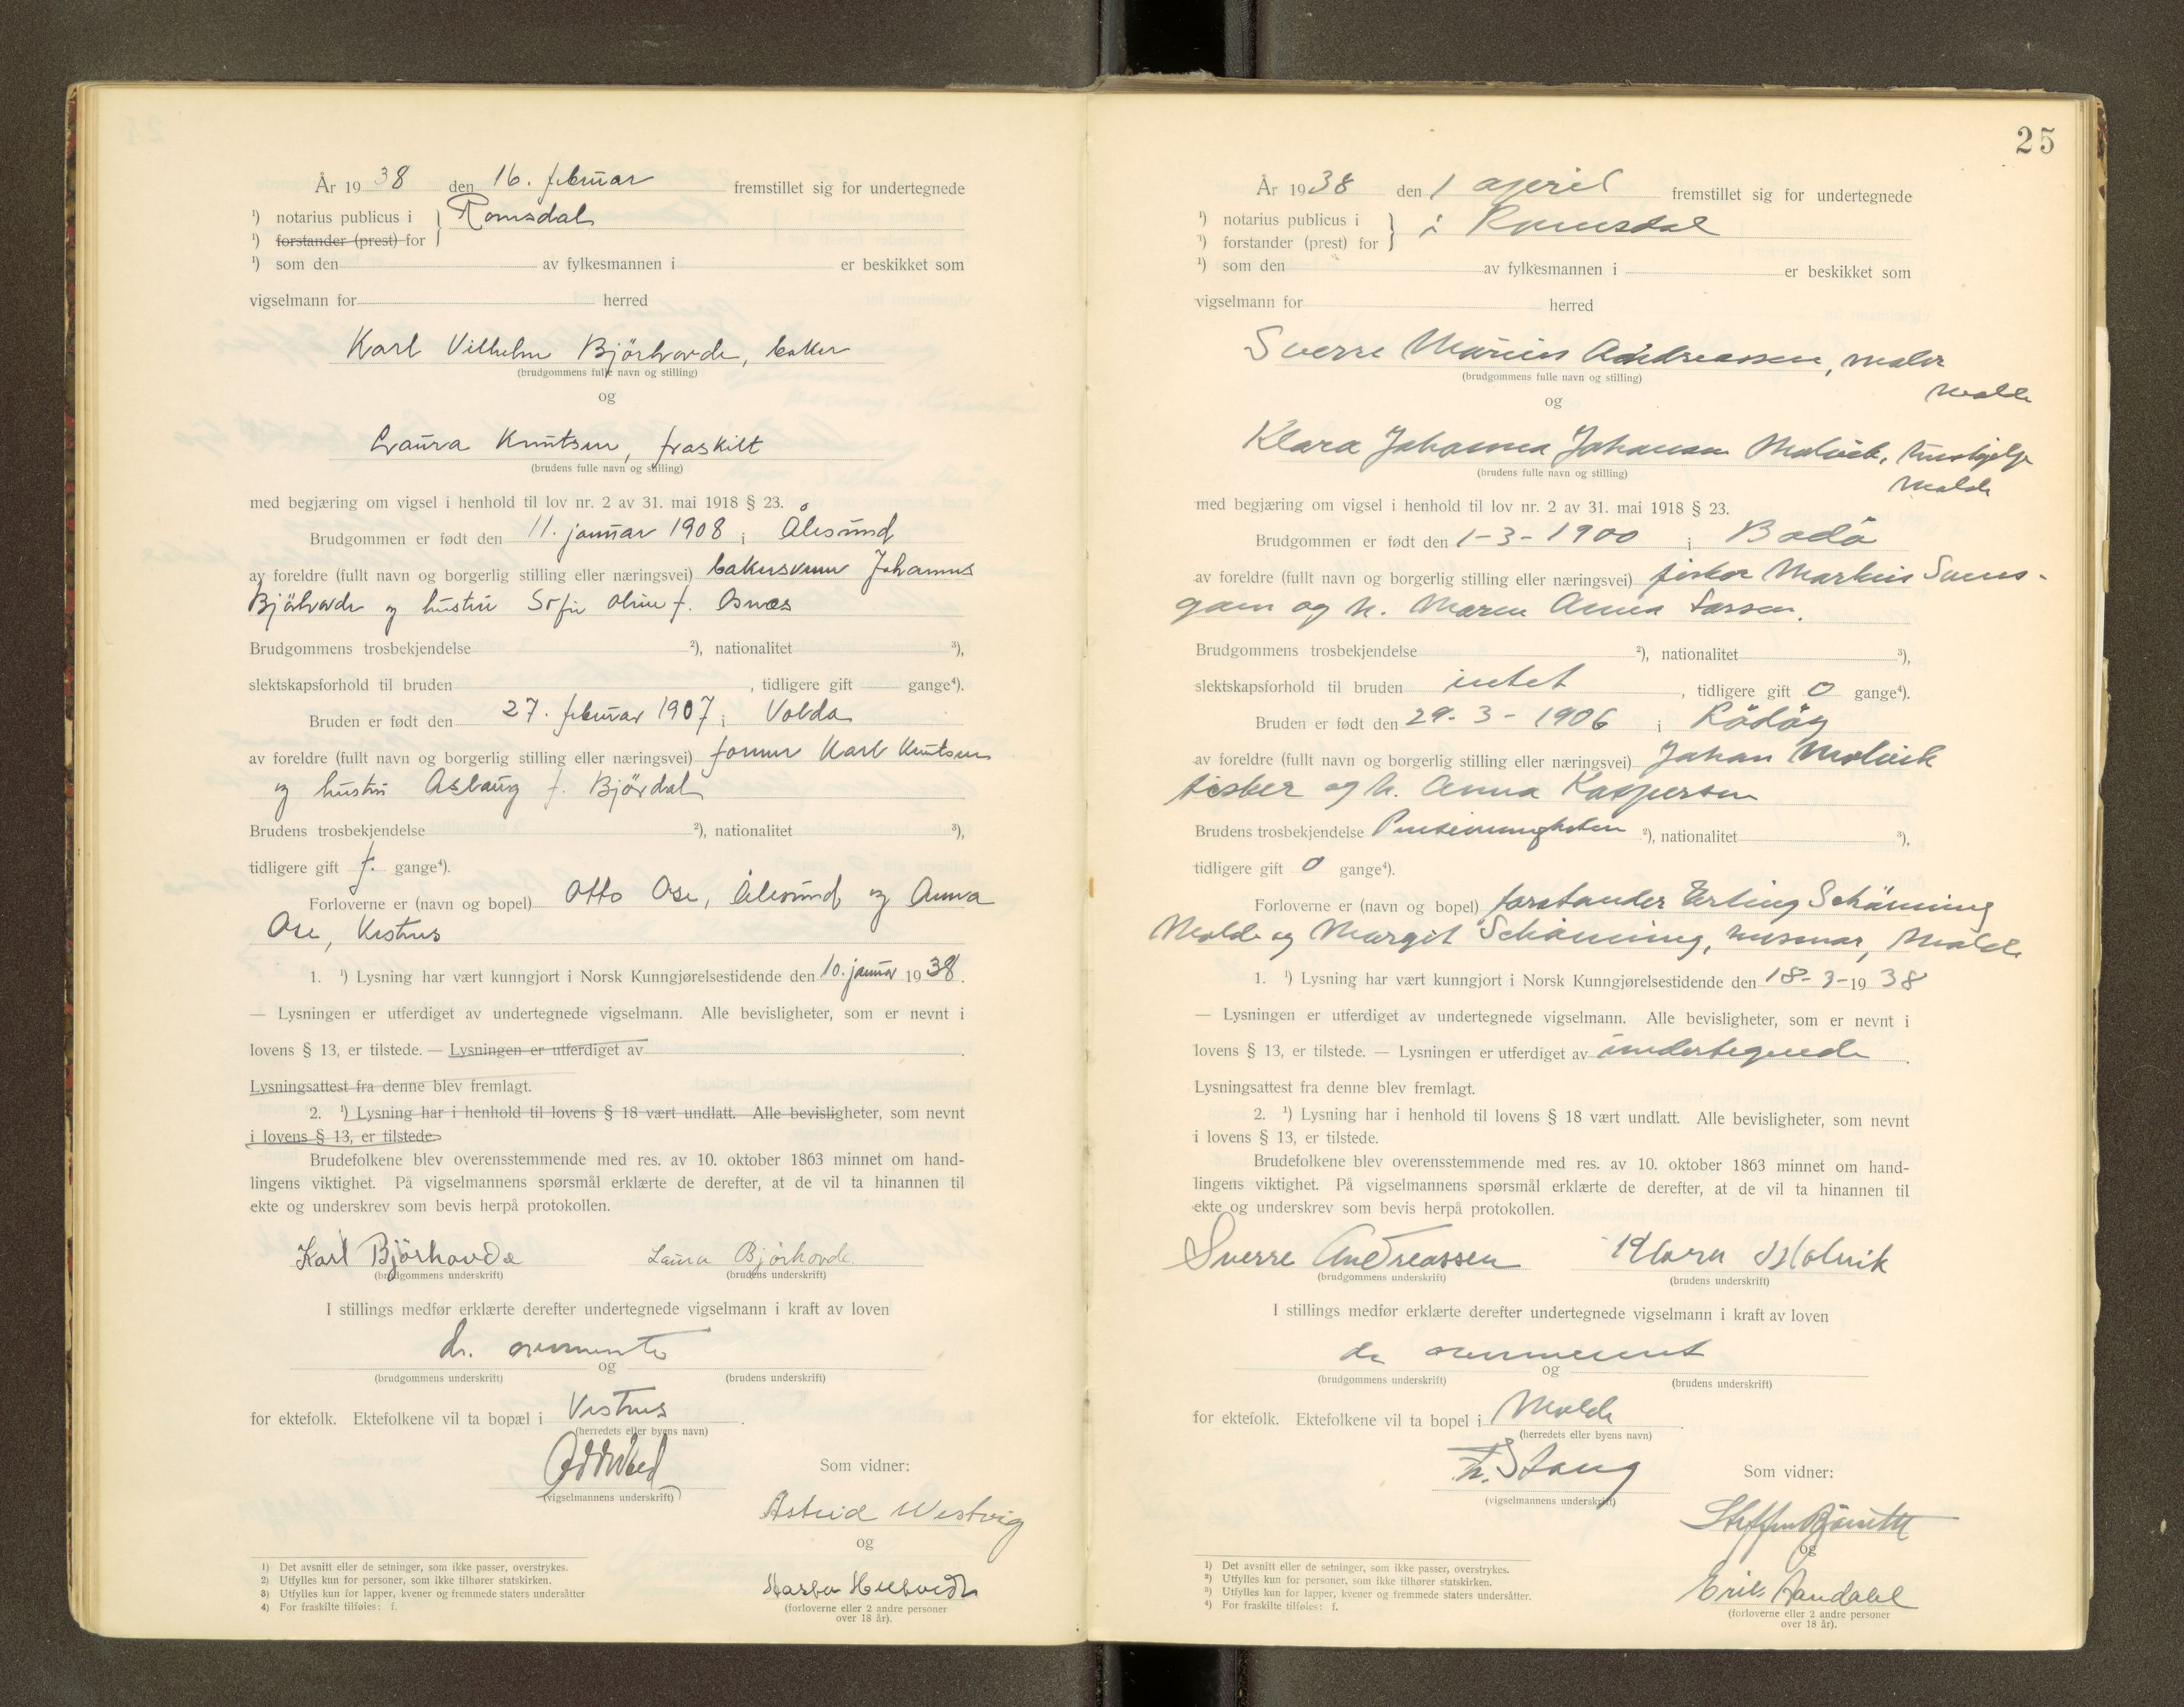 År 1938 den 16. februar fremstillet sig for undertegnede
1) notarius publicus i Romsdal
1) forstander (prest) for
1) som den av fylkesmannen i er beskikket som
vigselmann for herred
Karl Vilhelm Björhovde, baker
(brudgommens fulle navn og stilling)
og
Laura Knutsen, fraskilt
(brudens fulle navn og stilling)
med begjæring om vigsel i henhold til lov nr. 2 av 31. mai 1918 § 23.
Brudgommen er født den 11. januar 1908 i Ålesund
av foreldre (fullt navn og borgerlig stilling eller næringsvei) bakersvenn Johannes
Björhovde og hustru Sofie Oline f. Osnes
Brudgommens trosbekjendelse 2), nationalitet 3),
slektskapsforhold til bruden , tidligere gift gange4).
Bruden er født den 27. februar 1907 i Volda
av foreldre (fullt navn og borgerlig stilling eller næringsvei) former Karl Knutsen
og hustru Aslaug f. Björdal
Brudens trosbekjendelse 2), nationalitet 3),
tidligere gift f. gange4).
Forloverne er (navn og bopel) Otto Ose, Ålesund og Anna
Ose, Vestnes
1. 1) Lysning har vært kunngjort i Norsk Kunngjørelsestidende den 10. januar 1938.
— Lysningen er utferdiget av undertegnede vigselmann. Alle bevisligheter, som er nevnt i
lovens § 13, er tilstede. — Lysningen er utferdiget av .
Lysningsattest fra denne blev fremlagt.
2. 1) Lysning har i henhold til lovens § 18 vært undlatt. Alle bevisligheter, som nevnt
i lovens § 13, er tilstede.
Brudefolkene blev overensstemmende med res. av 10. oktober 1863 minnet om hand-
lingens viktighet. På vigselmannens spørsmål erklærte de derefter, at de vil ta hinannen til
ekte og underskrev som bevis herpå protokollen.
Karl Björhovde Laura Bjørhovde
(brudgommens underskrift) (brudens underskrift)
I stillings medfør erklærte derefter undertegnede vigselmann i kraft av loven
de ovennevnte
og
(brudgommens underskrift) (brudens underskrift)
for ektefolk. Ektefolkene vil ta bopæl i Vestnes .
(herredets eller byens navn)
Som vidner:
(vigselmannens underskrift)
Astrid Westvig
og
(forloverne eller 2 andre personer
over 18 år).
1) Det avsnitt eller de setninger, som ikke passer, overstrykes.
2) Utfylles kun for personer, som ikke tilhører statskirken.
3) Utfylles kun for lapper, kvener og fremmede staters undersåtter
4) For fraskilte tilføies: f.
25
År 1938 den 1 april fremstillet sig for undertegnede
1) notarius publicus i
1) forstander (prest) for i Romsdal
1) som den av fylkesmannen i er beskikket som
vigselmann for herred
Sverre Marius Andreassen, maler
Molde
(brudgommens fulle navn og stilling)
og
Klara Johanna Johansen Molvik, hushjelp
Molde
(brudens fulle navn og stilling)
med begjæring om vigsel i henhold til lov nr. 2 av 31. mai 1918 § 23.
Brudgommen er født den 1-3-1900 i Bodö
av foreldre (fullt navn og borgerlig stilling eller næringsvei) fisker
og h. Maren Anna Larsen.
Brudgommens trosbekjendelse 2), nationalitet 3),
slektskapsforhold til bruden intet , tidligere gift 0 gange4).
Bruden er født den 29-3-1906 i Rödöy
av foreldre (fullt navn og borgerlig stilling eller næringsvei) Johan Molvik
fisker og h. Anna Kaspersen
Brudens trosbekjendelse Pinsemenigheten 2), nationalitet 3),
tidligere gift 0 gange4).
Forloverne er (navn og bopel) forstander Erling Schönning
Molde og Margit Schönning, husmor, Molde
1. 1) Lysning har vært kunngjort i Norsk Kunngjørelsestidende den 18-3-1938
— Lysningen er utferdiget av undertegnede vigselmann. Alle bevisligheter, som er nevnt i
lovens § 13, er tilstede. — Lysningen er utferdiget av undertegnede .
Lysningsattest fra denne blev fremlagt.
2. 1) Lysning har i henhold til lovens § 18 vært undlatt. Alle bevisligheter, som nevnt
i lovens § 13, er tilstede.
Brudefolkene blev overensstemmende med res. av 10. oktober 1863 minnet om hand-
lingens viktighet. På vigselmannens spørsmål erklærte de derefter, at de vil ta hinannen til
ekte og underskrev som bevis herpå protokollen.
Sverre Andreassen Klara Molvik
(brudgommens underskrift) (brudens underskrift)
I stillings medfør erklærte derefter undertegnede vigselmann i kraft av loven
de ovennevnt
og
(brudgommens underskrift) (brudens underskrift)
for ektefolk. Ektefolkene vil ta bopel i Molde .
(herredets eller byens navn)
Stang Som vidner:
(vigselmannens underskrift)
Steffen
og
Erik Aandahl
(forloverne eller 2 andre personer
over 18 år).
1) Det avsnitt eller de setninger, som ikke passer, overstrykes.
2) Utfylles kun for personer, som ikke tilhører statskirken.
3) Utfylles kun for lapper, kvener og fremmede staters undersåtter.
4) For fraskilte tilføies: f.